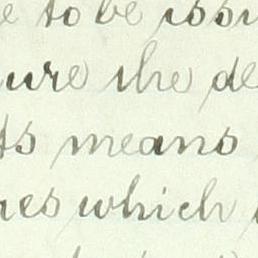 to be issu
ure the de
ts means
res which